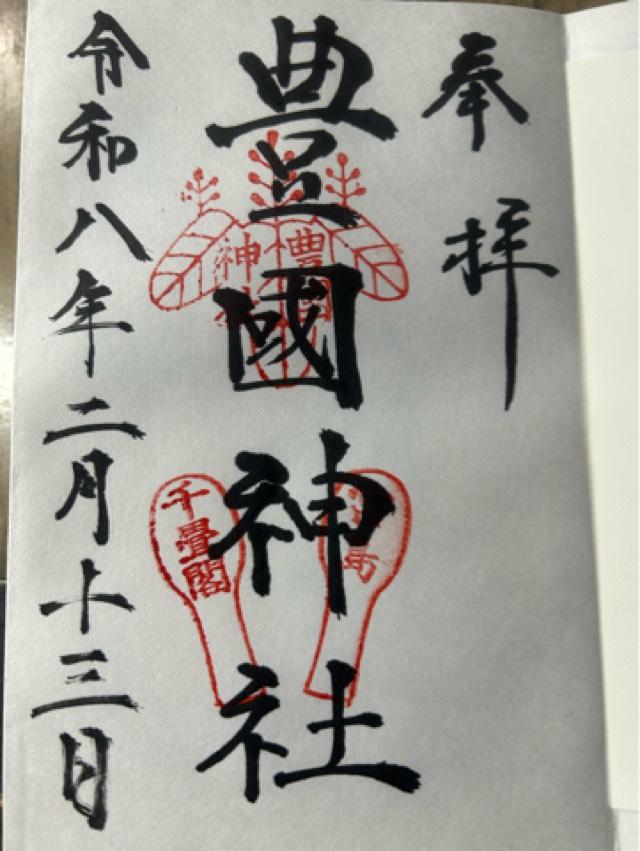 奉拝
豊國神社
豊國
神社
千畳閣
令和八年二月十三日